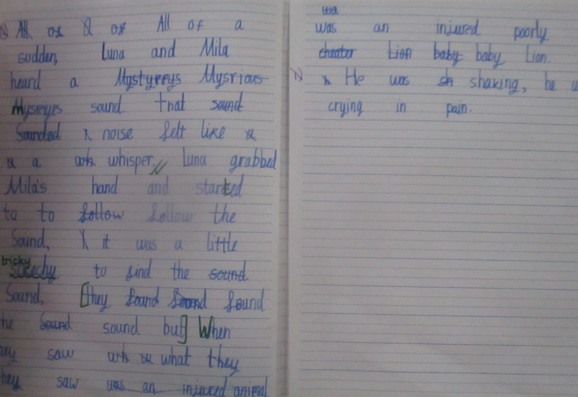 All of & of All of a
sudden, Luna and Mila
heard a Mystyreys Mysrious
Mysreyes sound. that sound
Sounded noise felt like
a wh whisper, Luna grabbed
Mila's hand and started
to to follow follow the
Sound, it was a little
tricky to find the sound.
Sound, [they found found found
the sound sound but] When
they saw wh what they
they saw was an injured animal
was
was an injured poorly
cheater Lion baby baby Lion.
He was sh shaking, he
crying in pain.